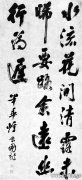 水流花開清露未
晞要路愈遠幽
行為遲